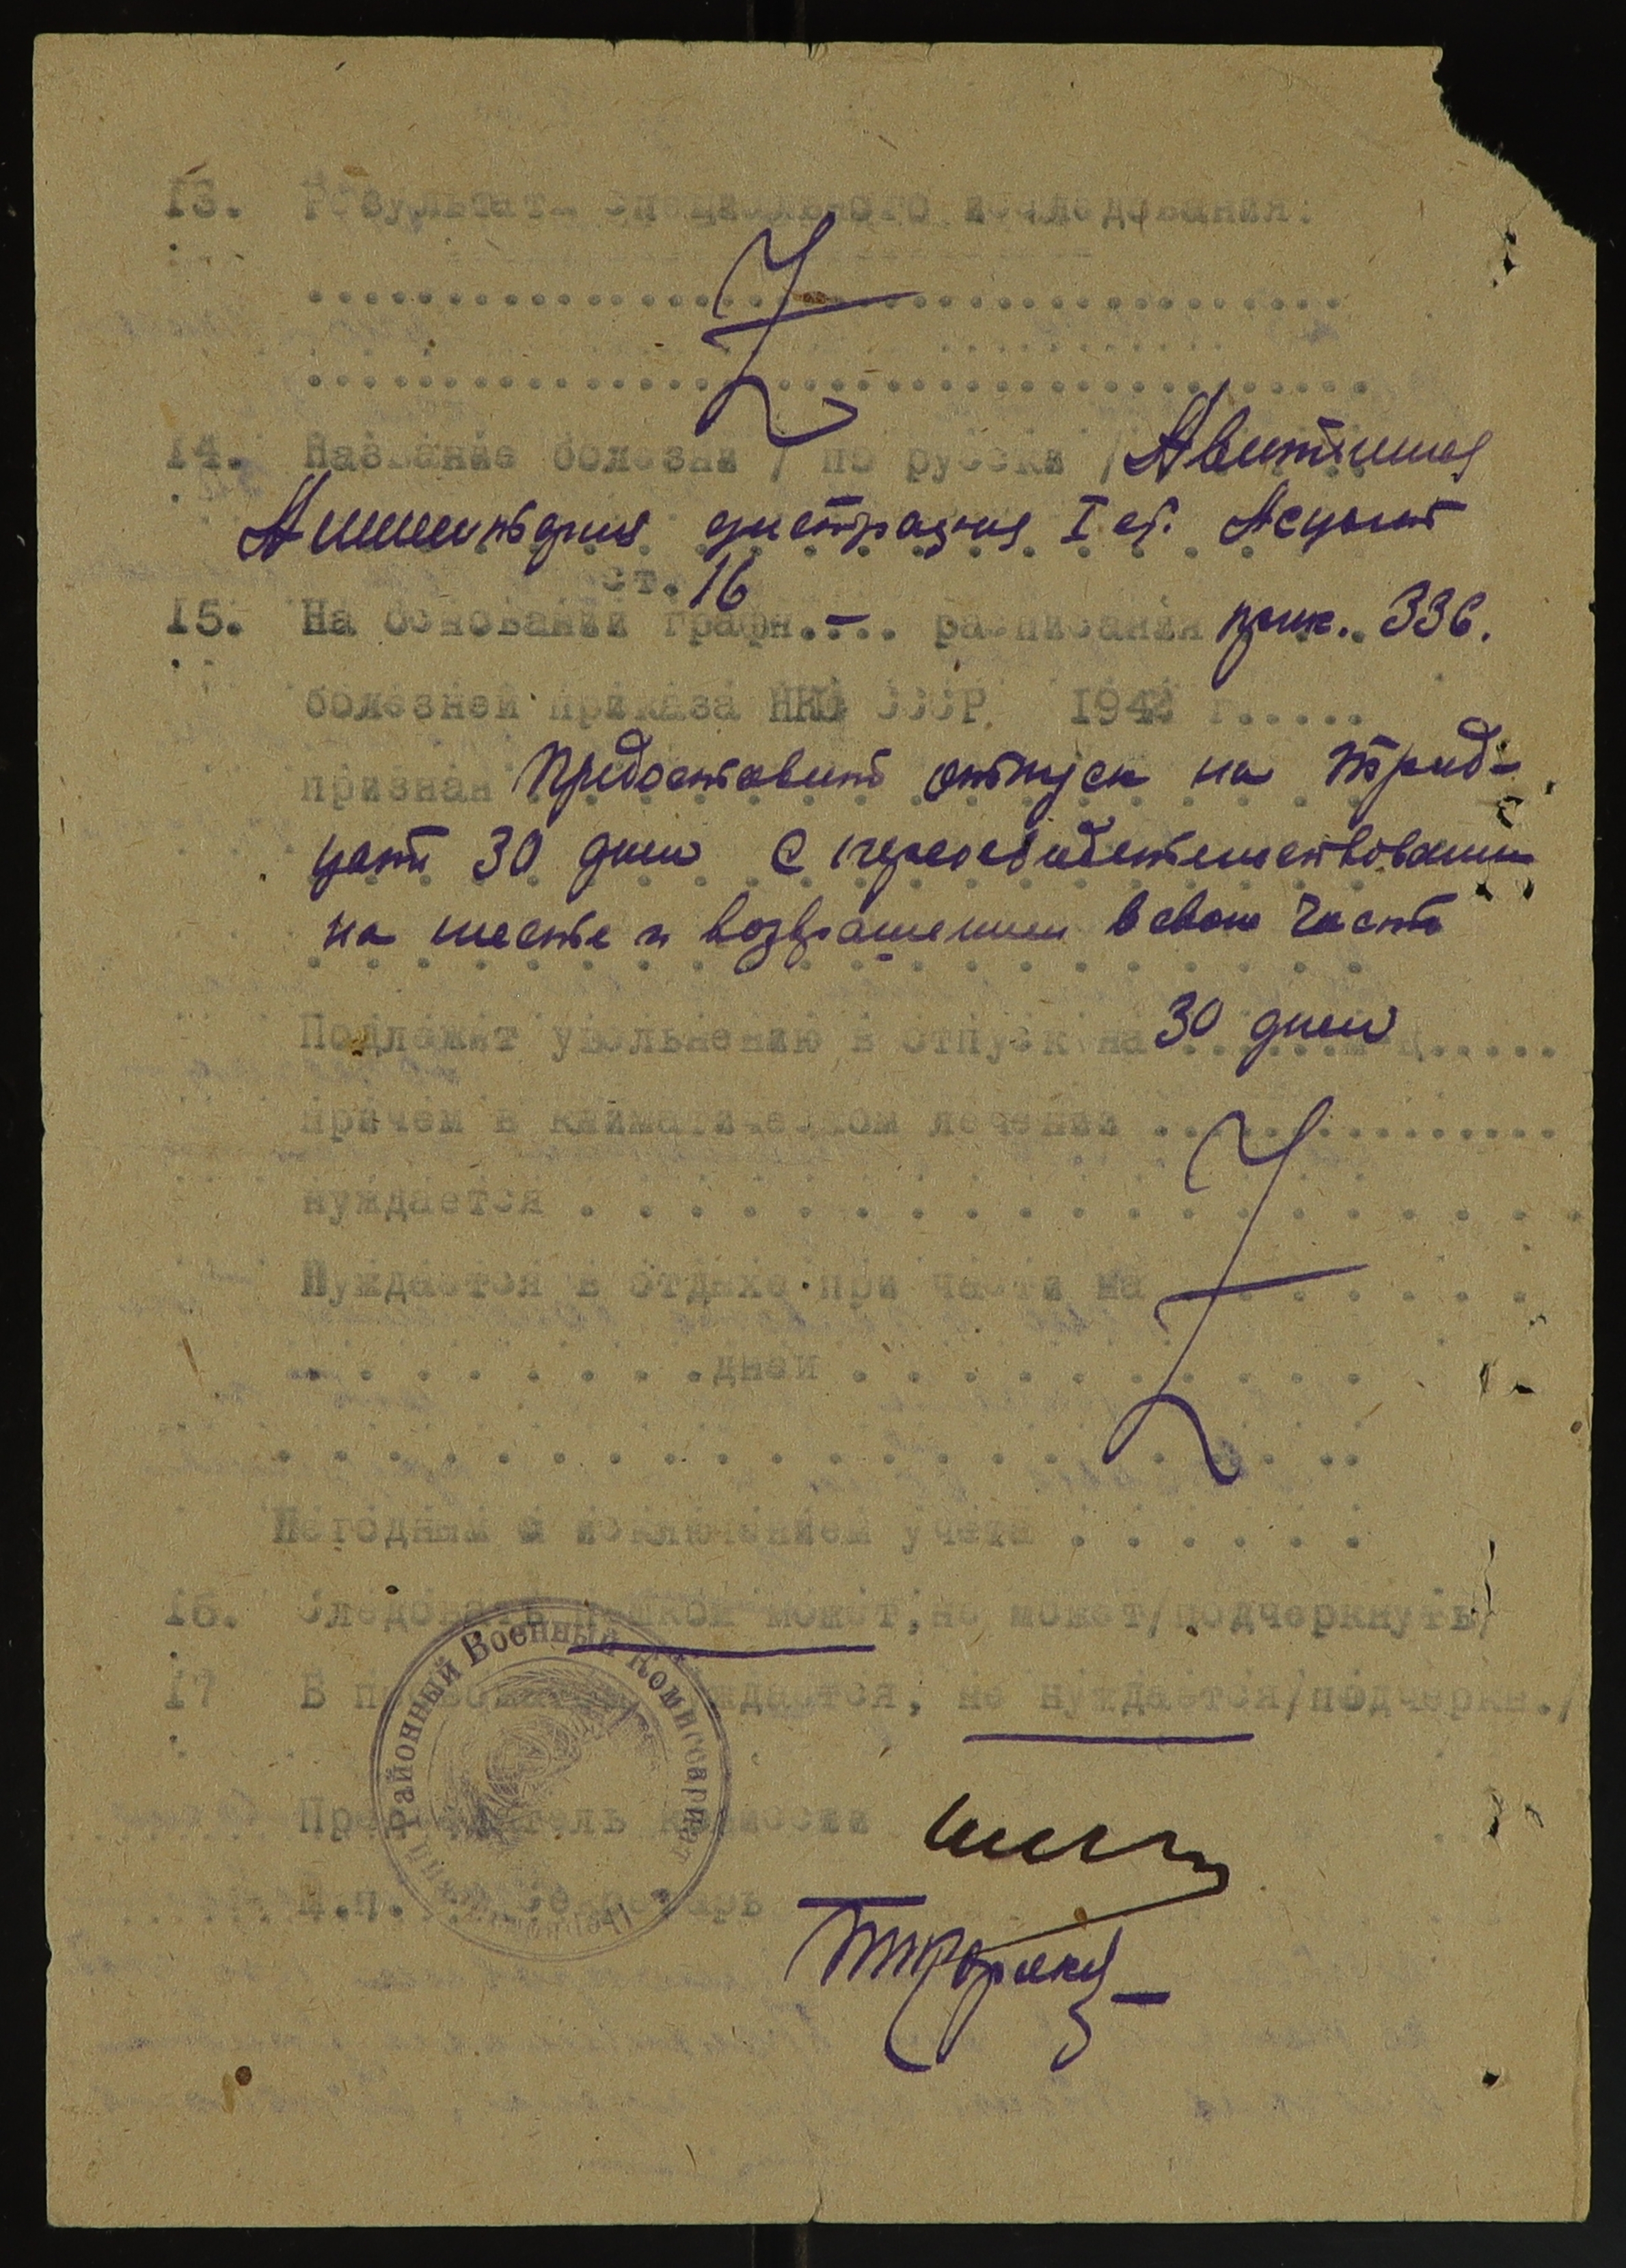 13. Результаты специального исследования:
14. Название болезни / по русски /
дистрация I ст. Асцит
ст. 16
15. На основании графы.... расписания прик. 336.
болезней приказа НКО СССР 1942 г.....
признан Предоставить отпуск на трид-
цать 30 дней с переосвидетельствованием
на месте и возвращением в свою часть
Подлежит увольнению в отпуск на 30 дней
причем в климатическом лечении ...............
нуждается . . . . . . . . . . . . . . . . . . .
Нуждается в отдыхе при части на . . . . . . .
. . . . . . . . дней . . . . . . . . . .
Негодным с исключением учета . . . . . .
16. Следовать пешком может, не может/подчеркнуть/
17 В нуждается, не нуждается/подчеркн./
Районный Военный Комиссариат
Председатель комиссии
М.п. Секретарь